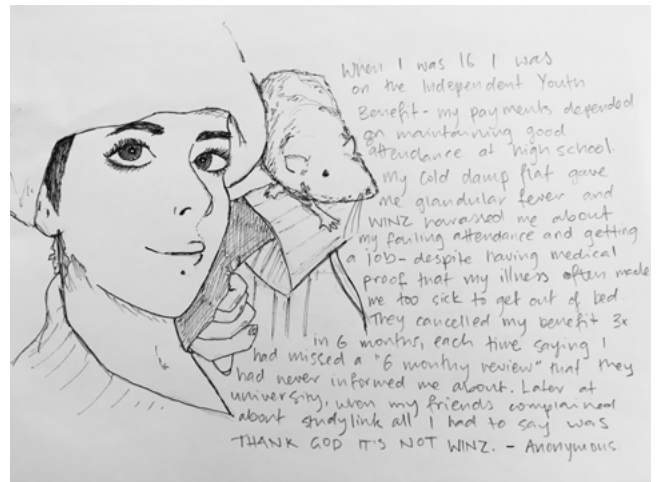 When I was 16 I was
on the Independent Youth
Benefit - my payments depended
on maintaining good
attendance at high school.
My cold damp flat gave
me glandular fever and
WINZ harassed me about
my failing attendance and getting
a job - despite having medical
proof that my illness often made
me too sick to get out of bed.
They cancelled my benefit 3x
in 6 months, each time saying I
had missed a "6 monthy review" that they
had never informed me about. Later at
university, when my friends complained
about studylink all I had to say was
THANK GOD IT'S NOT WINZ. - Anonymous